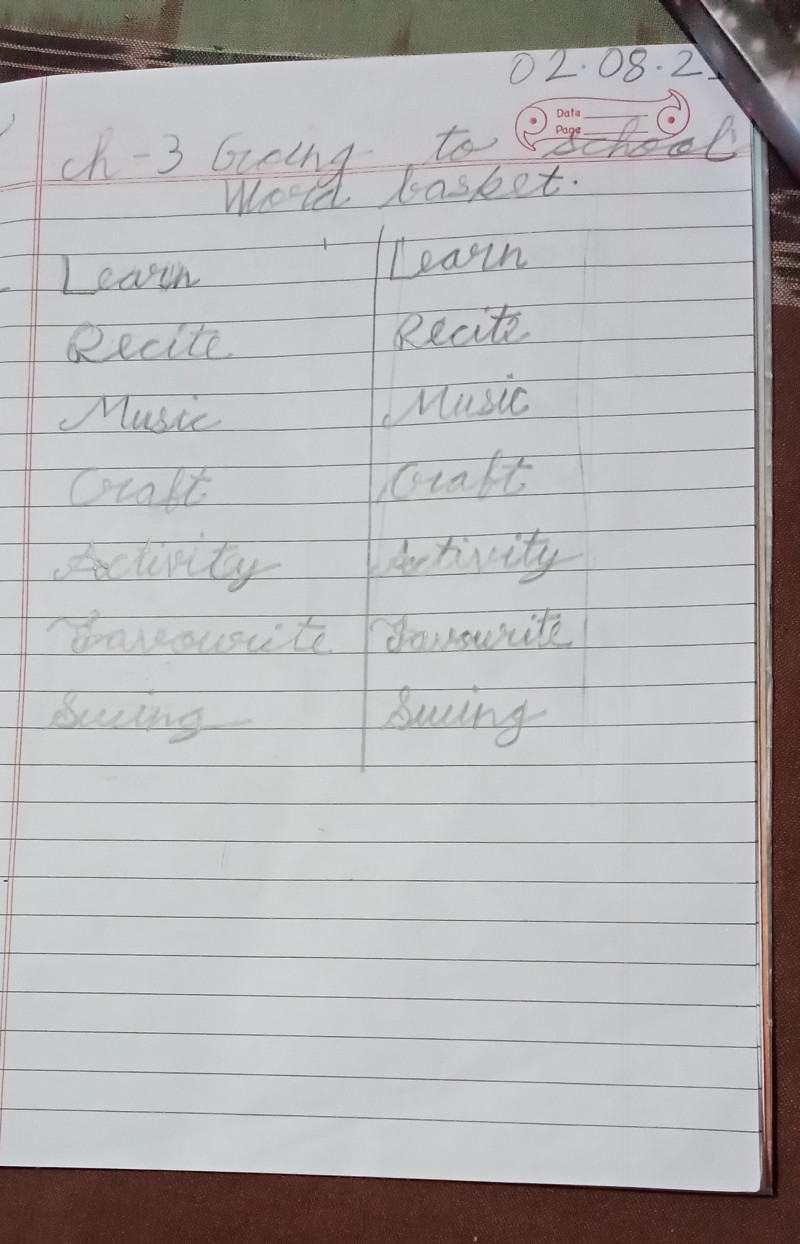 02.08.2
Date
Page
Ch-3 Going to School
Word basket.
Learn Learn
Recite Recite
Music Music
Craft Craft
Activity Activity
Favourite Favourite
Swing Swing